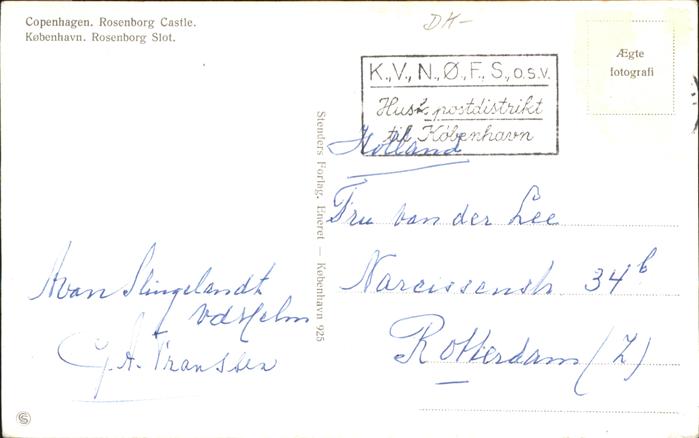 Copenhagen. Rosenborg Castle.
København. Rosenborg Slot.
DK-
Ægte
fotografi
K., V., N., Ø., F., S., O.S.V.
Husk postdistrikt
til København
Stenders Forlag. Eneret — København 925
Holland
Fru van der Lee
Narcissenstr 34 b
Rotterdam (Z)
A van Slingelandt
vdHelm
G. A. Franssen